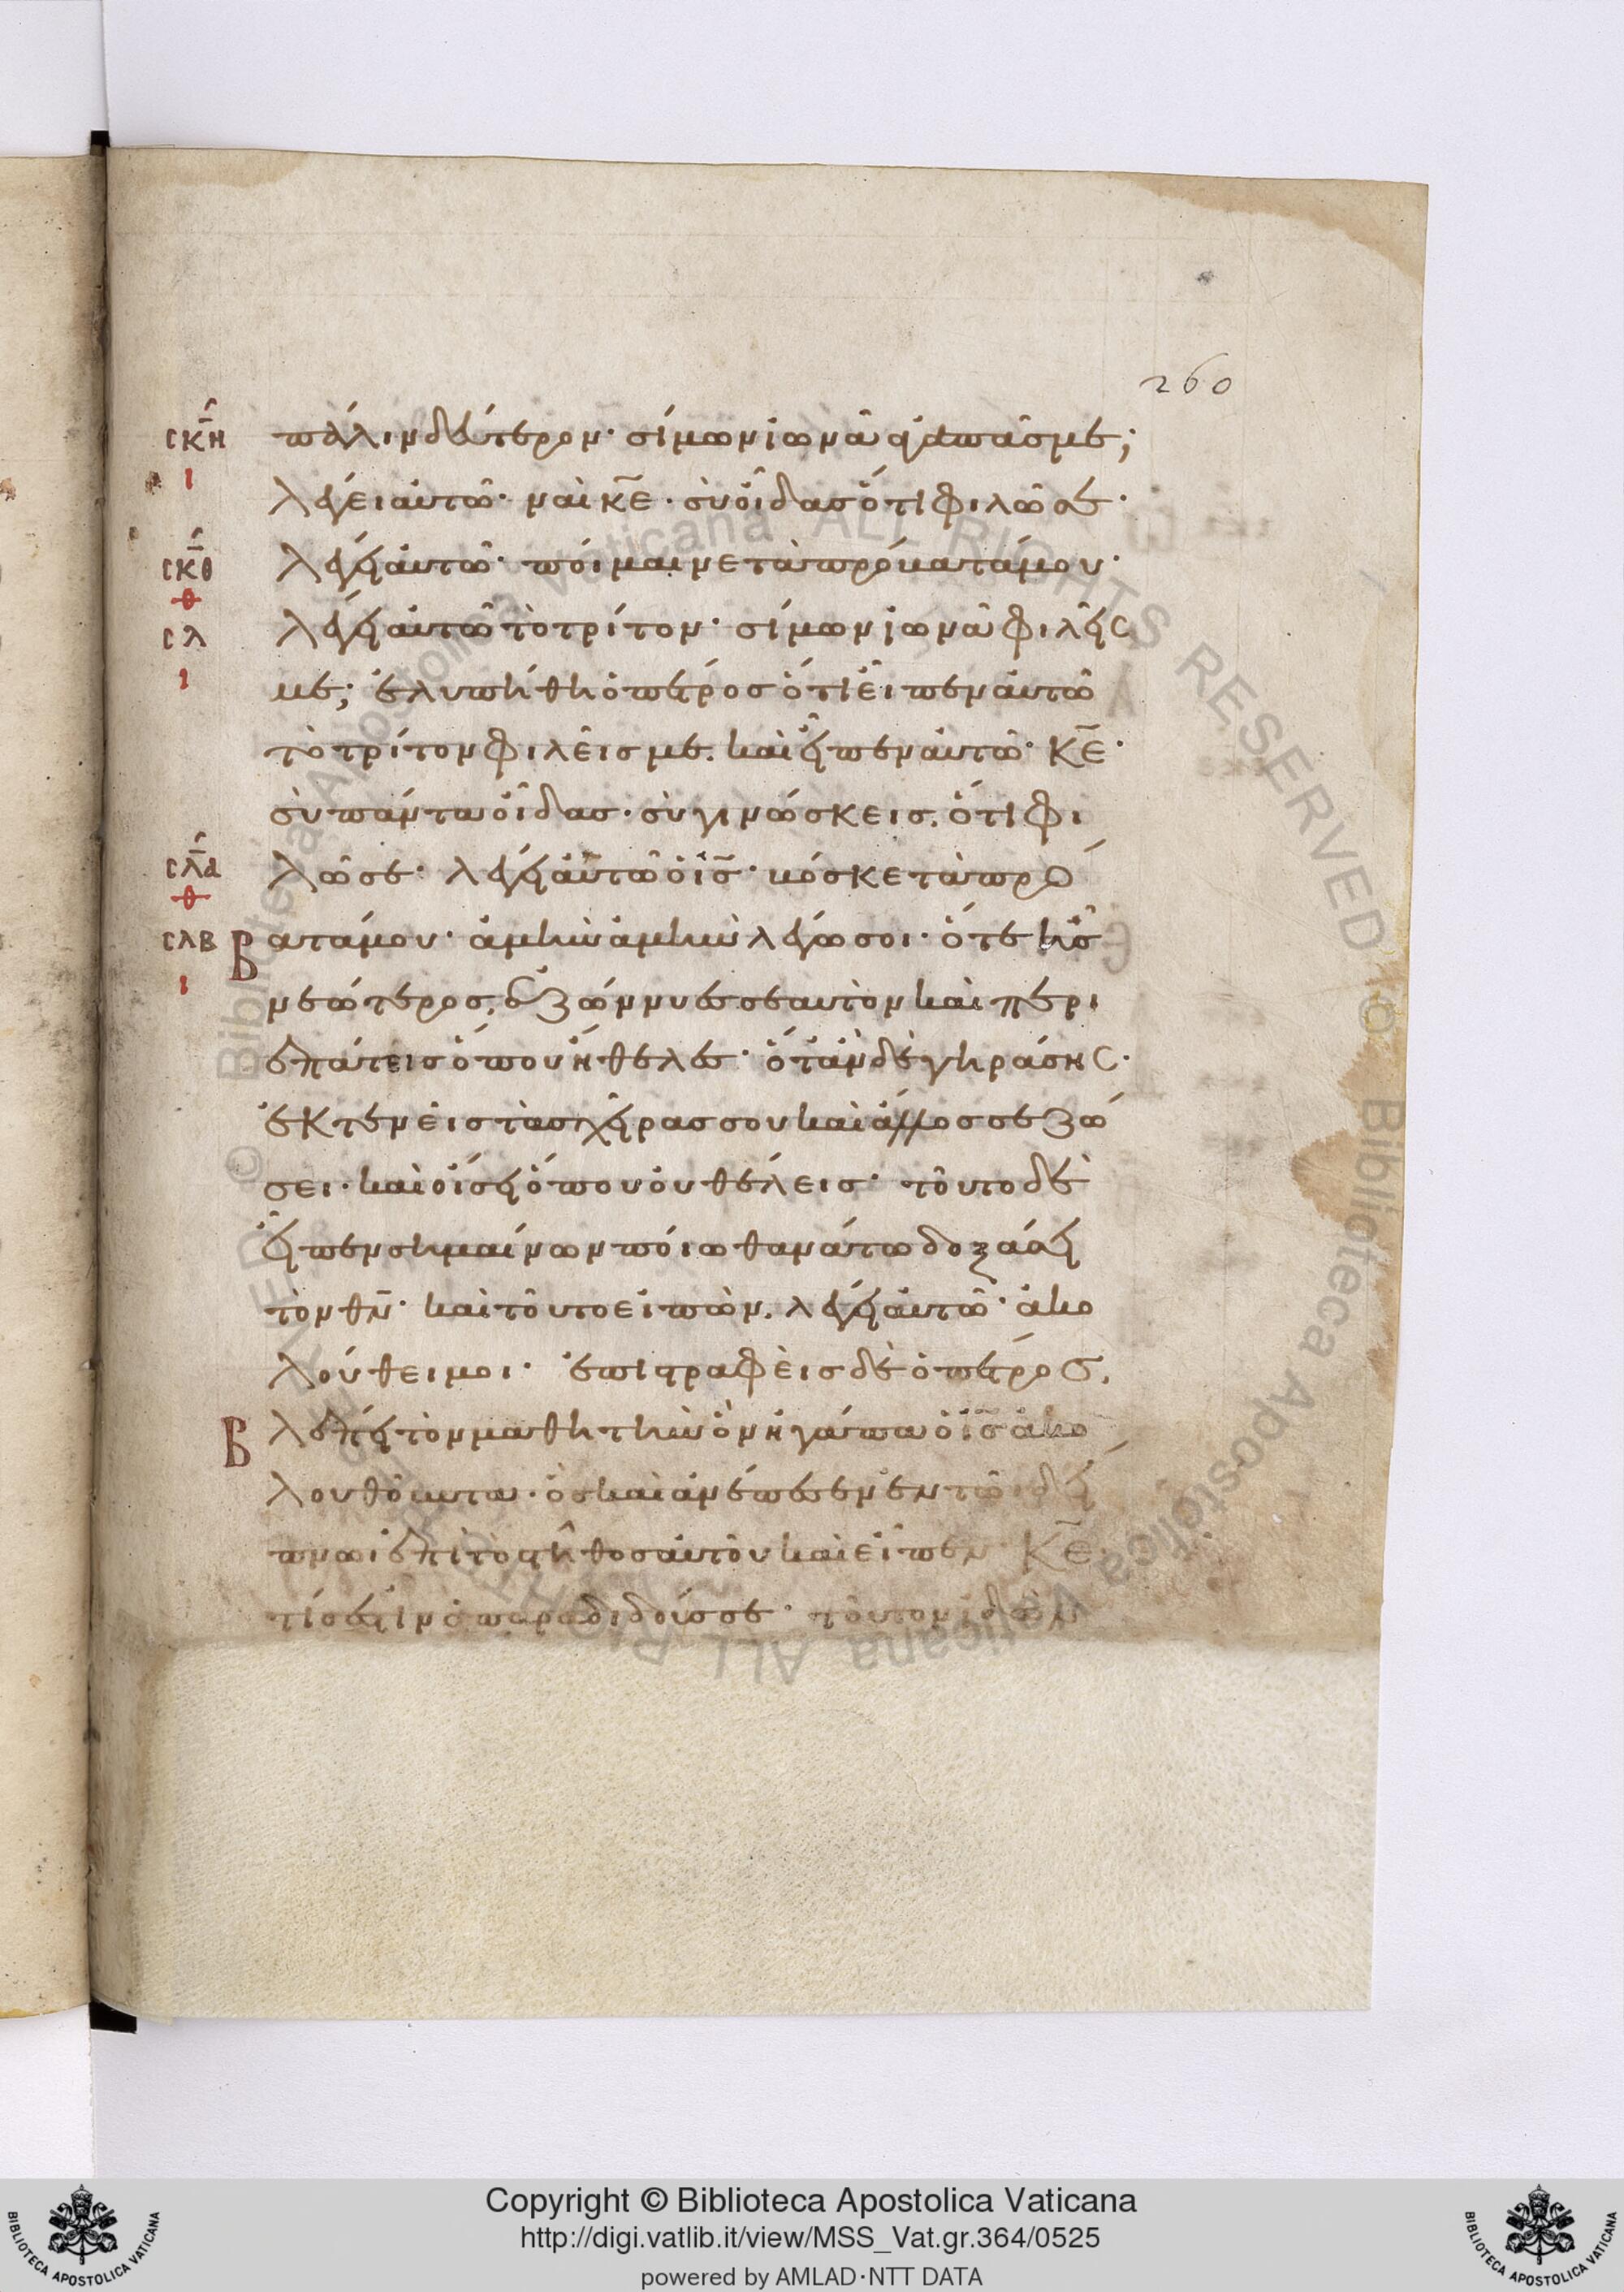 260
σκη πάλιν δεύτερον· σίμων ϊωνᾶ ἀγαπᾶσ με;
ι λέγει αὐτῶ· ναὶ κε̅· σὺ οἶδασ ὅτι φιλῶ σέ·
σκθ λέγει αὐτῶ· ποίμαινε τὰ πρόβατά μου·
θ
σλ λέγει αὐτῶ τὸ τρίτον· σίμων ϊωνᾶ φιλεῖσ
ι με; ἐλυπήθη ὁ πέτροσ ὅτι εἶπεν αὐτῶ
τὸ τρίτον φιλεῖσ με. καὶ εἶπεν αὐτῶ· κε̅·
σὺ πάντα οἶδασ· σὺ γινώσκεισ. ὅτι φι
σλα λῶ σε· λέγει αὐτῶ ὁ ισ̅· βόσκε τὰ πρό
θ
σλβ βατά μου· ἀμὴν ἀμὴν λέγω σοι· ὅτε ἦσ
ι νεώτεροσ, ἐζώννυεσ σεαυτὸν καὶ περι
επάτεισ ὅπου ἤθελεσ· ὅταν δὲ γηράσησ·
ἐκτενεῖσ τὰσ χεῖρασ σου καὶ ἄλλοσ σε ζώ
σει· καὶ οἴσει ὅπου οὐ θέλεισ· τοῦτο δὲ
εἶπεν σημαίνων ποίω θανάτω δοξάσει
τὸν θν̅· καὶ τοῦτο εἰπὼν. λέγει αὐτῶ· ἀκο
λούθει μοι· ἐπιστραφεὶσ δὲ ὁ πέτροσ,
βλέπει τὸν μαθητὴν ὃν ἠγάπα ὁ ισ̅ ἀκο
λουθοῦντα· ὃσ καὶ ἀνέπεσεν ἐν τῶ δεί
πνω ἐπὶ τὸ στῆθοσ αὐτοῦ καὶ εἶπεν κε̅·
τίσ ἐστιν ὁ παραδιδούσ σε· τοῦτον ἰδὼν
Copyright © Biblioteca Apostolica Vaticana
http://digi.vatlib.it/view/MSS_Vat.gr.364/0525
powered by AMLAD·NTT DATA